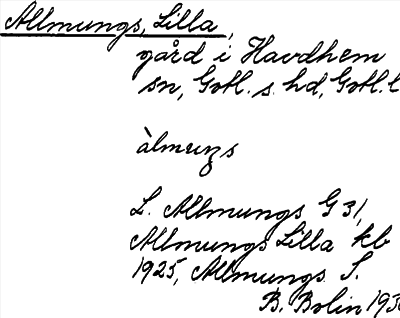 Allmungs, Lilla,
gård i Havdhem
sn, Gotl. s. hd, Gotl. l
àlmuŋs
L. Allmungs G 31,
Allmungs Lilla kb
1925, Allmungs S.
B. Bolin 193